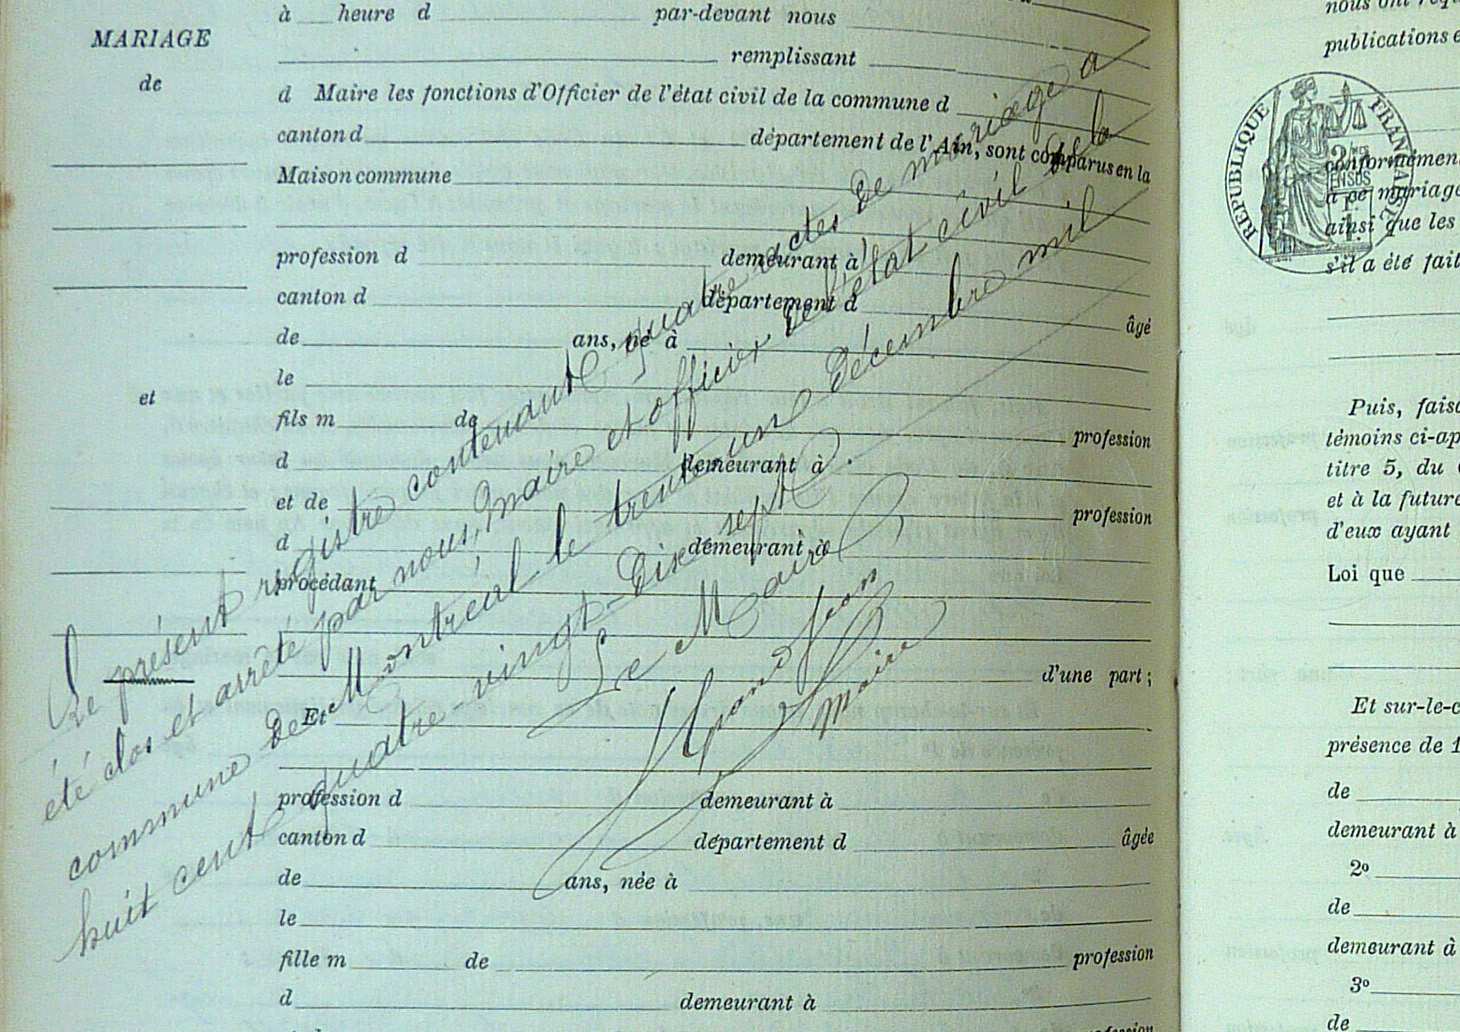 MARIAGE
de
et
à heure d par-devant nous
remplissant
d Maire les fonctions d'Officier de l'état civil de la commune d
canton d département de l'Ain, sont comparus en la
Maison commune
profession d demeurant à
canton d département d
de ans, né à âgé
le
fils m de
profession
d demeurant à
et de
profession
d demeurant à
procédant
d'une part;
Et
profession d demeurant à
canton d département d âgée
de ans, née à
le
fille m de profession
d demeurant à
Le présent registre contenant quatre actes de mariage a
été clos et arrêté par nous, maire et officier de l'état civil de la
commune de Montréal le trente un décembre mil
huit cent quatre vingt-dix sept.
Le Maire
Jean
maire
publications
RÉPUBLIQUE FRANÇAISE
conformémen
à ce mariage
ainsi que les
s'il a été fait
Puis, fais
témoins ci-ap
titre 5, du
et à la future
d'eux ayant
Loi que
Et sur-le-c
présence de 1
de
demeurant à
2º
de
demeurant à
3º
de